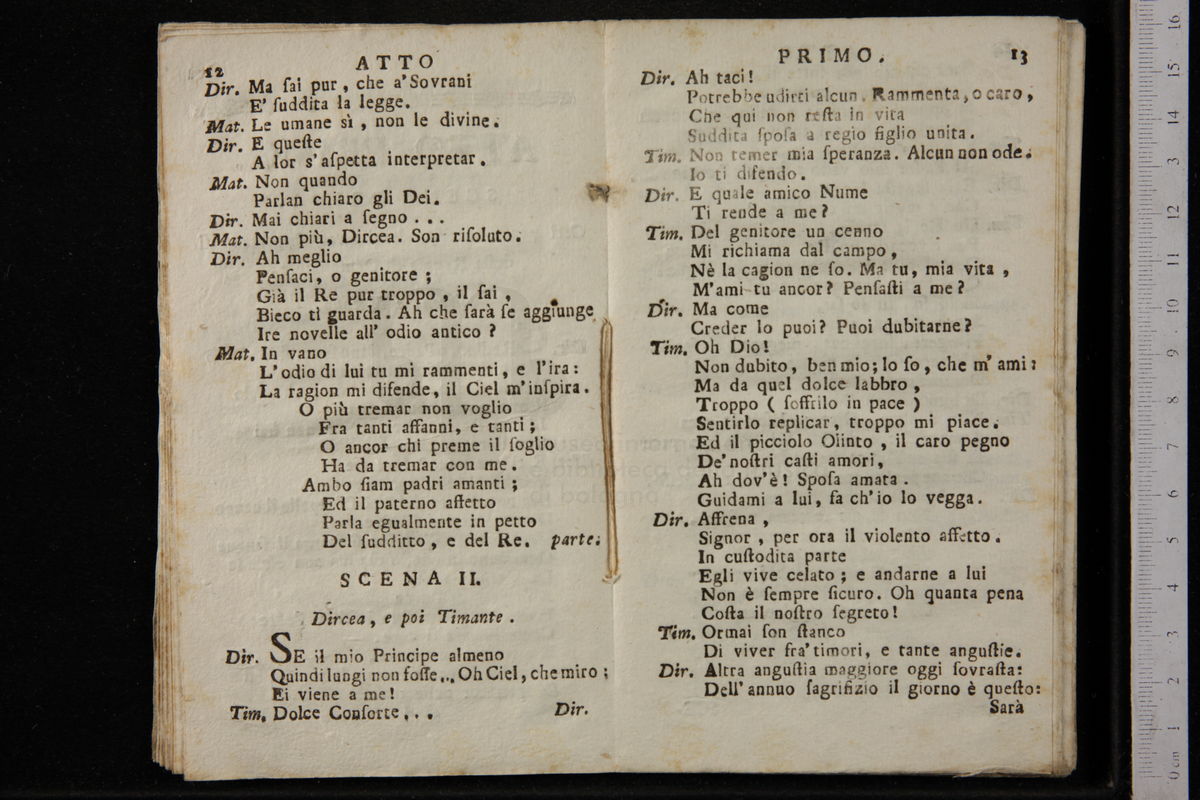 12 ATTO
Dir. Ma ſai pur, che a' Sovrani
E' ſuddita la legge.
Mat. Le umane sì, non le divine.
Dir. E queſte
A lor s'aſpetta interpretar.
Mat. Non quando
Parlan chiaro gli Dei.
Dir. Mai chiari a ſegno...
Mat. Non più, Dircea. Son riſoluto.
Dir. Ah meglio
Penſaci, o genitore;
Già il Re pur troppo, il ſai,
Bieco ti guarda. Ah che ſarà ſe aggiunge
Ire novelle all' odio antico?
Mat. In vano
L'odio di lui tu mi rammenti, e l'ira:
La ragion mi difende, il Ciel m'inſpira.
O più tremar non voglio
Fra tanti affanni, e tanti;
O ancor chi preme il ſoglio
Ha da tremar con me.
Ambo ſiam padri amanti;
Ed il paterno affetto
Parla egualmente in petto
Del ſudditto, e del Re. parte.
SCENA II.
Dircea, e poi Timante.
Dir. SE il mio Principe almeno
Quindi lungi non foſſe... Oh Ciel, che miro;
Ei viene a me!
Tim. Dolce Conſorte...
Dir.
PRIMO. 13
Dir. Ah taci!
Potrebbe udirti alcun. Rammenta, o caro,
Che qui non reſta in vita
Suddita ſpoſa a regio figlio unita.
Tim. Non temer mia ſperanza. Alcun non ode.
Io ti difendo.
Dir. E quale amico Nume
Ti rende a me?
Tim. Del genitore un cenno
Mi richiama dal campo,
Nè la cagion ne ſo. Ma tu, mia vita,
M'ami tu ancor? Penſaſti a me?
Dir. Ma come
Creder lo puoi? Puoi dubitarne?
Tim. Oh Dio!
Non dubito, ben mio; lo ſo, che m' ami:
Ma da quel dolce labbro,
Troppo ( ſoffrilo in pace )
Sentirlo replicar, troppo mi piace.
Ed il picciolo Olinto, il caro pegno
De' noſtri caſti amori,
Ah dov'è! Spoſa amata.
Guidami a lui, fa ch'io lo vegga.
Dir. Affrena,
Signor, per ora il violento affetto.
In cuſtodita parte
Egli vive celato; e andarne a lui
Non è ſempre ſicuro. Oh quanta pena
Coſta il noſtro ſegreto!
Tim. Ormai ſon ſtanco
Di viver fra' timori, e tante anguſtie.
Dir. Altra anguſtia maggiore oggi ſovraſta:
Dell' annuo ſagrifizio il giorno è queſto:
Sarà
0 cm 1 2 3 4 5 6 7 8 9 10 11 12 13 14 15 16